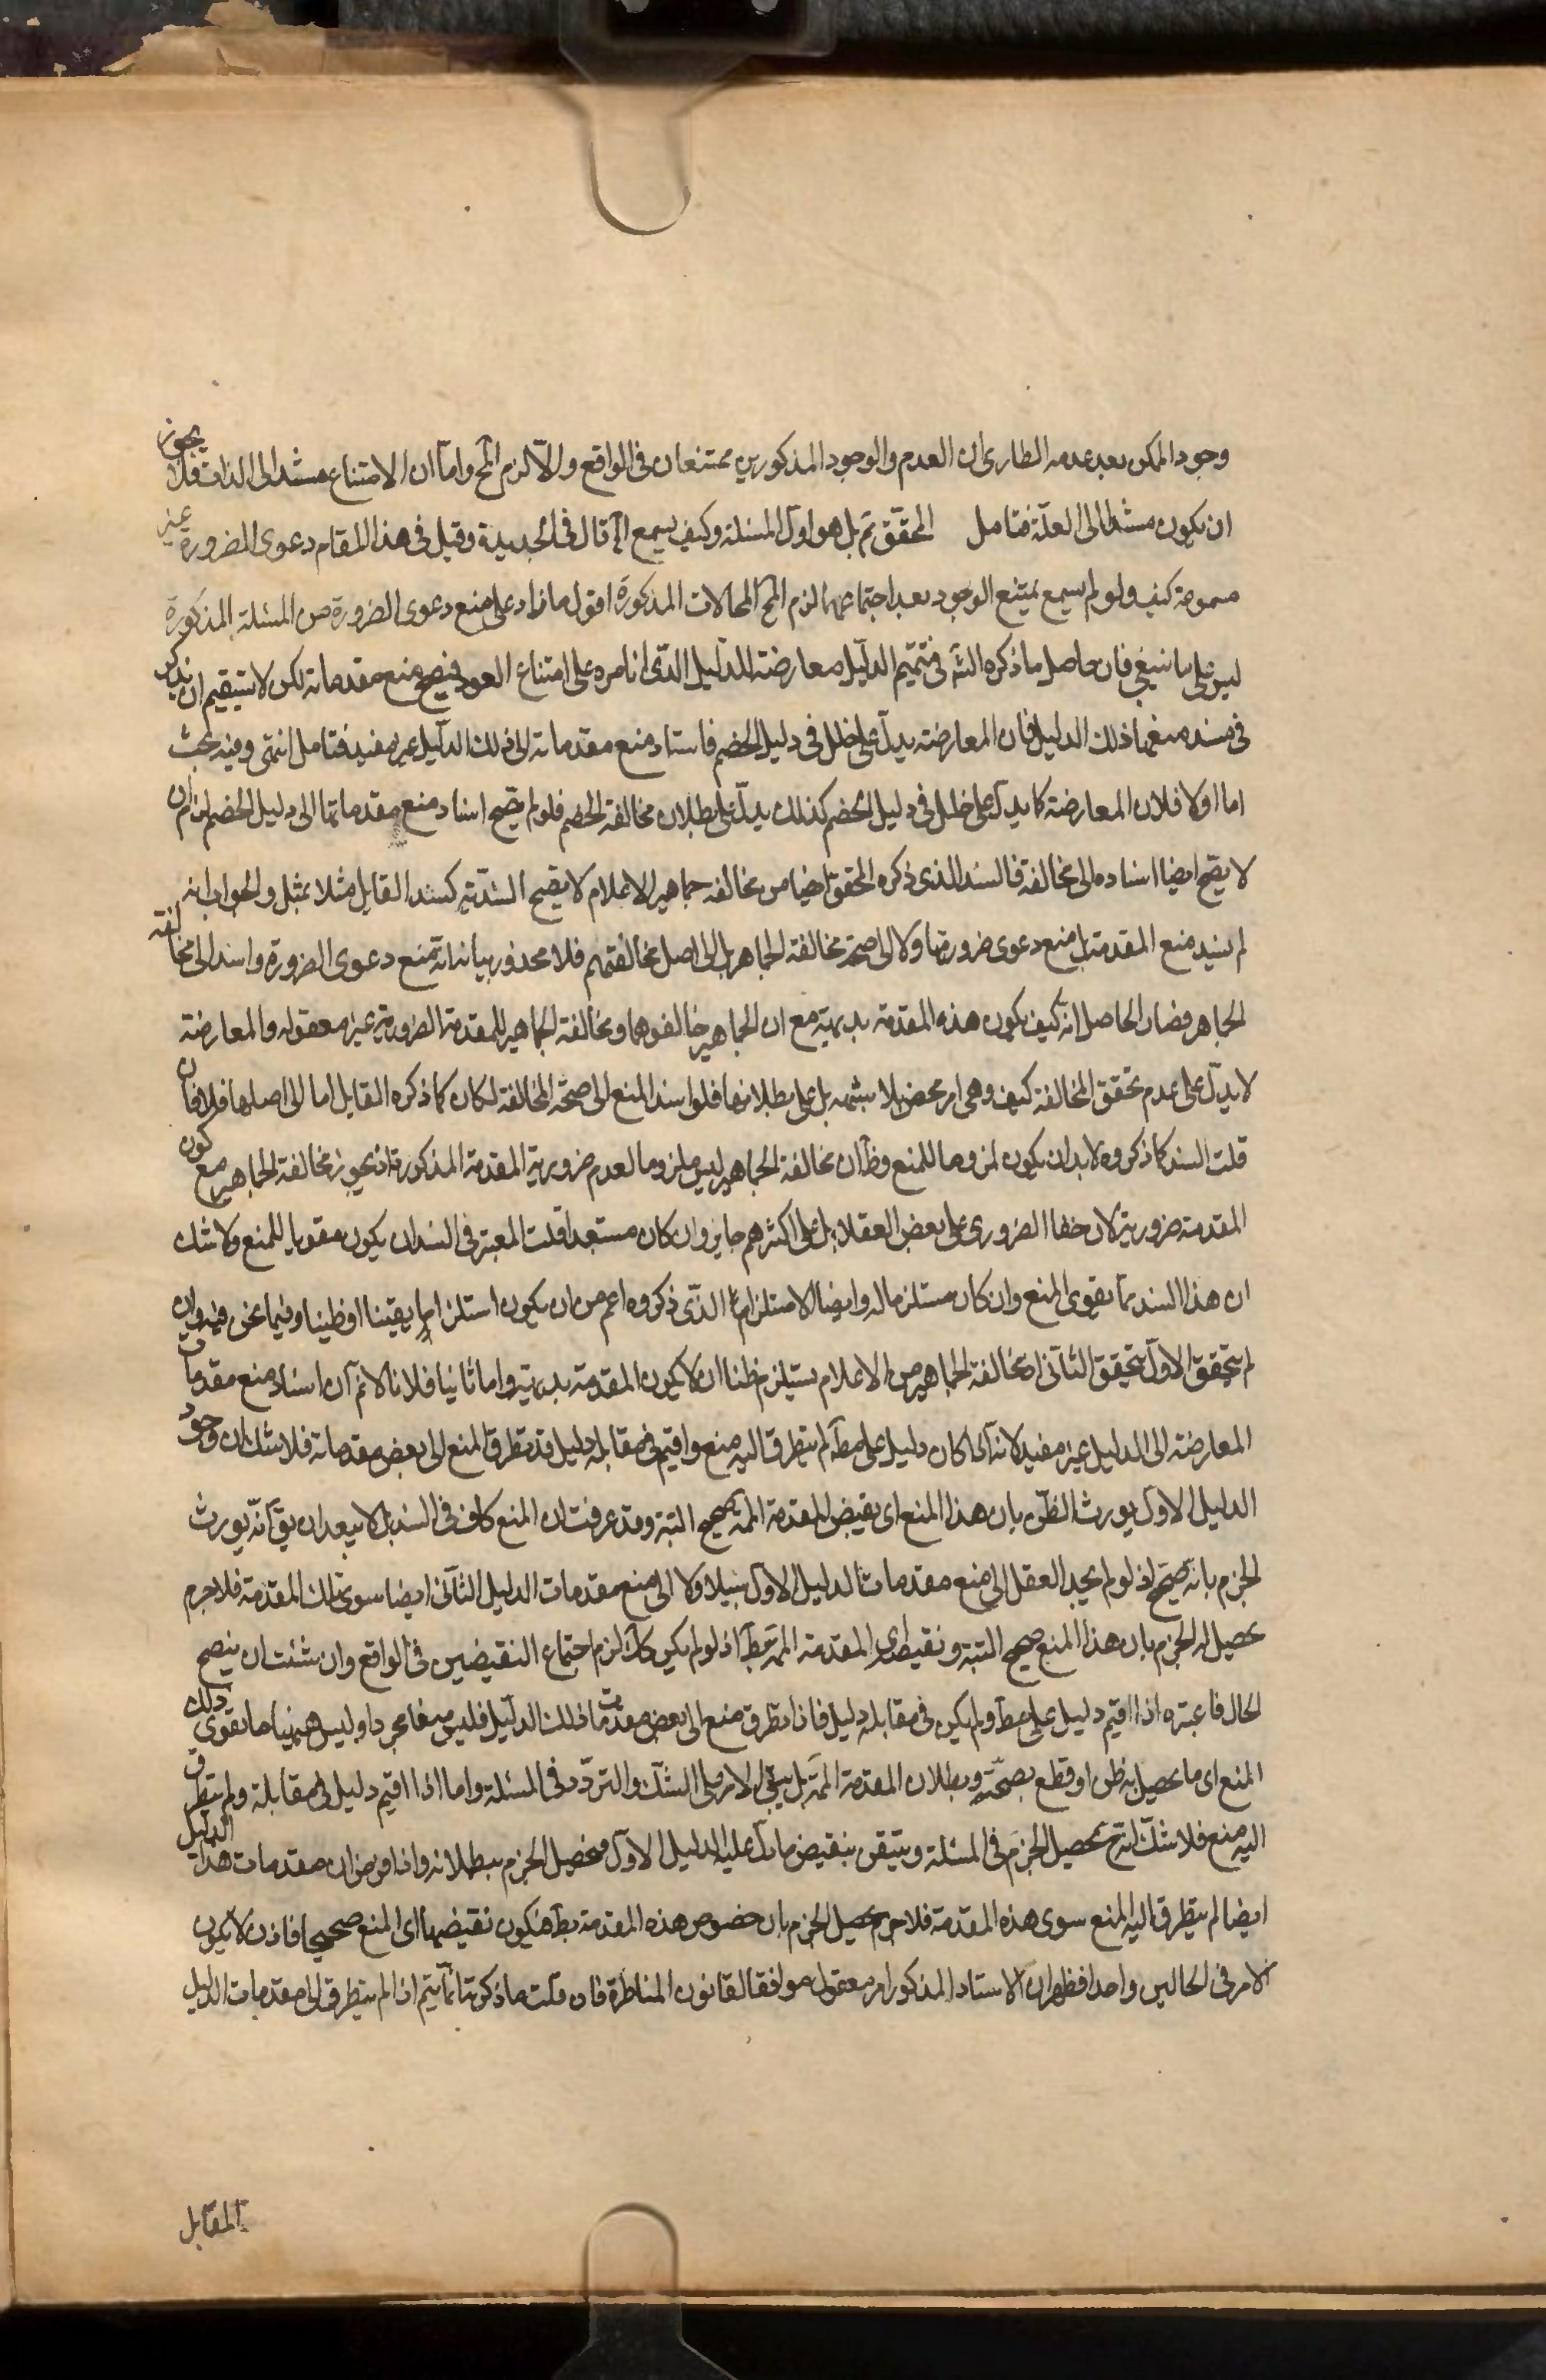 وجود الممكن بعد عدمه الطارى ان العدم والوجود المذكورين ممتنعان فى الواقع والّا لزم المح واما ان الامتناع مستند الى الذات فلا يجوز
ان يكون مستندا الى العلّة فتامل المحقّق ثم بل هو اول المسئلة وكيف يسمع الخ قال فى الجديدة وقيل فى هذا المقام دعوى الضرورة غير
مسموعة كيف ولو لم يسمع يمتنع الوجود بعد اجتماعهما لزم المحالات المذكورة اقول ما زاد على منع دعوى الضرورة من المسئلة المذكورة
ليس على ما ينبغى فان حاصل ما ذكره الشه فى تتميم الدليل معارضة للدليل الذى اقامره على امتناع العود فيصح منع مقدماته لكن لا يستقيم ان يذكر
فى سند منعها ذلك الدليل فان المعارضة يدل على خلل فى دليل الخصم فاسناد منع مقدماته الى ذلك الدليل غير مفيد فتامل انتهى وفيه بحث
اما اولا فلان المعارضة كما يدل على خلل فى دليل الخصم كذلك يدل على بطلان مخالفة الخصم فلو لم يصح اسناد منع مقدماتها الى دليل الخصم لزم ان
لا يصح ايضا اسناده الى مخالفة فالسند الذى ذكره المحقق ايضا من مخالفة جماهير الاعلام لا يصح السنديّة كسند القايل مثلا بمثل والجواب انه
لم يسند منع المقدمة بل منع دعوى ضرورتها ولا الى صحة مخالفة الجماهر بل الى اصل مخالفتهم فلا محذور بيانه انه منع دعوى الضرورة واسند الى مخالفة
الجماهر فصار الحاصل انه كيف يكون هذه المقدمة بديهية مع ان الجماهير خالفوها ومخالفة الجماهير للمقدمة الضرورية غير معقول والمعارضة
لا يدل على عدم تحقق المخالفة كيف وهى امر محض بلا شبهه بل على بطلانها فلو اسند المنع الى صحة المخالفة لكان كما ذكره القايل اما الى اصلها فلا فان
قلت السند كما ذكروه لا بد ان يكون ملزوما للمنع وظ ان مخالفة الجماهير ليس ملزوما لعدم ضرورية المقدمة المذكورة اذ يجوز مخالفة الجماهير مع كون
المقدمة ضرورية لان خفا الضرورى على بعض العقلاء بل على اكثرهم جايز وان كان مستبعدا قلت المعتبر فى السند ان يكون مقويا للمنع ولا شك
ان هذا السند مما يقوى المنع وان كان مستلزما له وايضا الاستلزام الذى ذكروه اعم من ان يكون استلزاما يقينا او ظنيا وفيما نحن فيه وان
لم يتحقق الاول يتحقق الثانى اذ مخالفة الجماهير من الاعلام يستلزم ظنا ان لا يكون المقدمة بديهية واما ثانيا فلانا لا نم ان اسناد منع مقدمات
المعارضة الى الدليل غير مفيد لانه لما كان دليل على مط لم يتطرق اليه منع واقيم فى مقابله دليل قد يتطرق المنع الى بعض مقدماته فلا شك ان وجود
الدليل الاول يورث الظن بان هذا المنع اى نقيض المقدمة الممنوعة صحيح البتة وقد عرفت ان المنع كاف فى السند بل لا يبعد ان يق انّه يورث
الجزم بانه صحيح اذ لو لم يجد العقل الى منع مقدمات الدليل الاول سبيلا ولا الى منع مقدمات الدليل الثانى ايضا سوى تلك المقدمة فلا جرم
يحصل له الجزم بان هذا المنع صحيح البتة ونقيضه اى المقدمة الممه بط اذ لو لم يكن كك لزم اجتماع النقيضين فى الواقع وان شئت ان يتضح
الحال فاعتبره اذا اقيم دليل على مط ولم يكن فى مقابله دليل فاذا يتطرق منع الى بعض مقدمات ذلك الدليل فليس منعا مجردا وليس ههنا ما يقوى ذلك
المنع اى ما يحصل به ظن او قطع بصحّته وبطلان المقدمة الممه بل يبقى الامر على الشك والتردّد فى المسئلة واما اذا اقيم دليل فى مقابلة ولم يتطرق
اليه منع فلا شك انه ح يحصل الجزم فى المسئلة ويتيقن بنقيض ما دل عليه الدليل الاول فيحصل الجزم ببطلانه واذا فرض ان مقدمات هذا الدليل
ايضا لم يتطرق اليه المنع سوى هذه المقدمة فلا جرم يحصل الجزم بان خصوص هذه المقدمة بط فيكون نقيضها اى المنع صحيحا فاذن لا يكون
الامر فى الحالين واحدا فظهر ان الاسناد المذكور امر معقول موافق لقانون المناظرة فان قلت ما ذكرته انما يتم اذا لم يتطرق الى مقدمات الدليل
المقابل